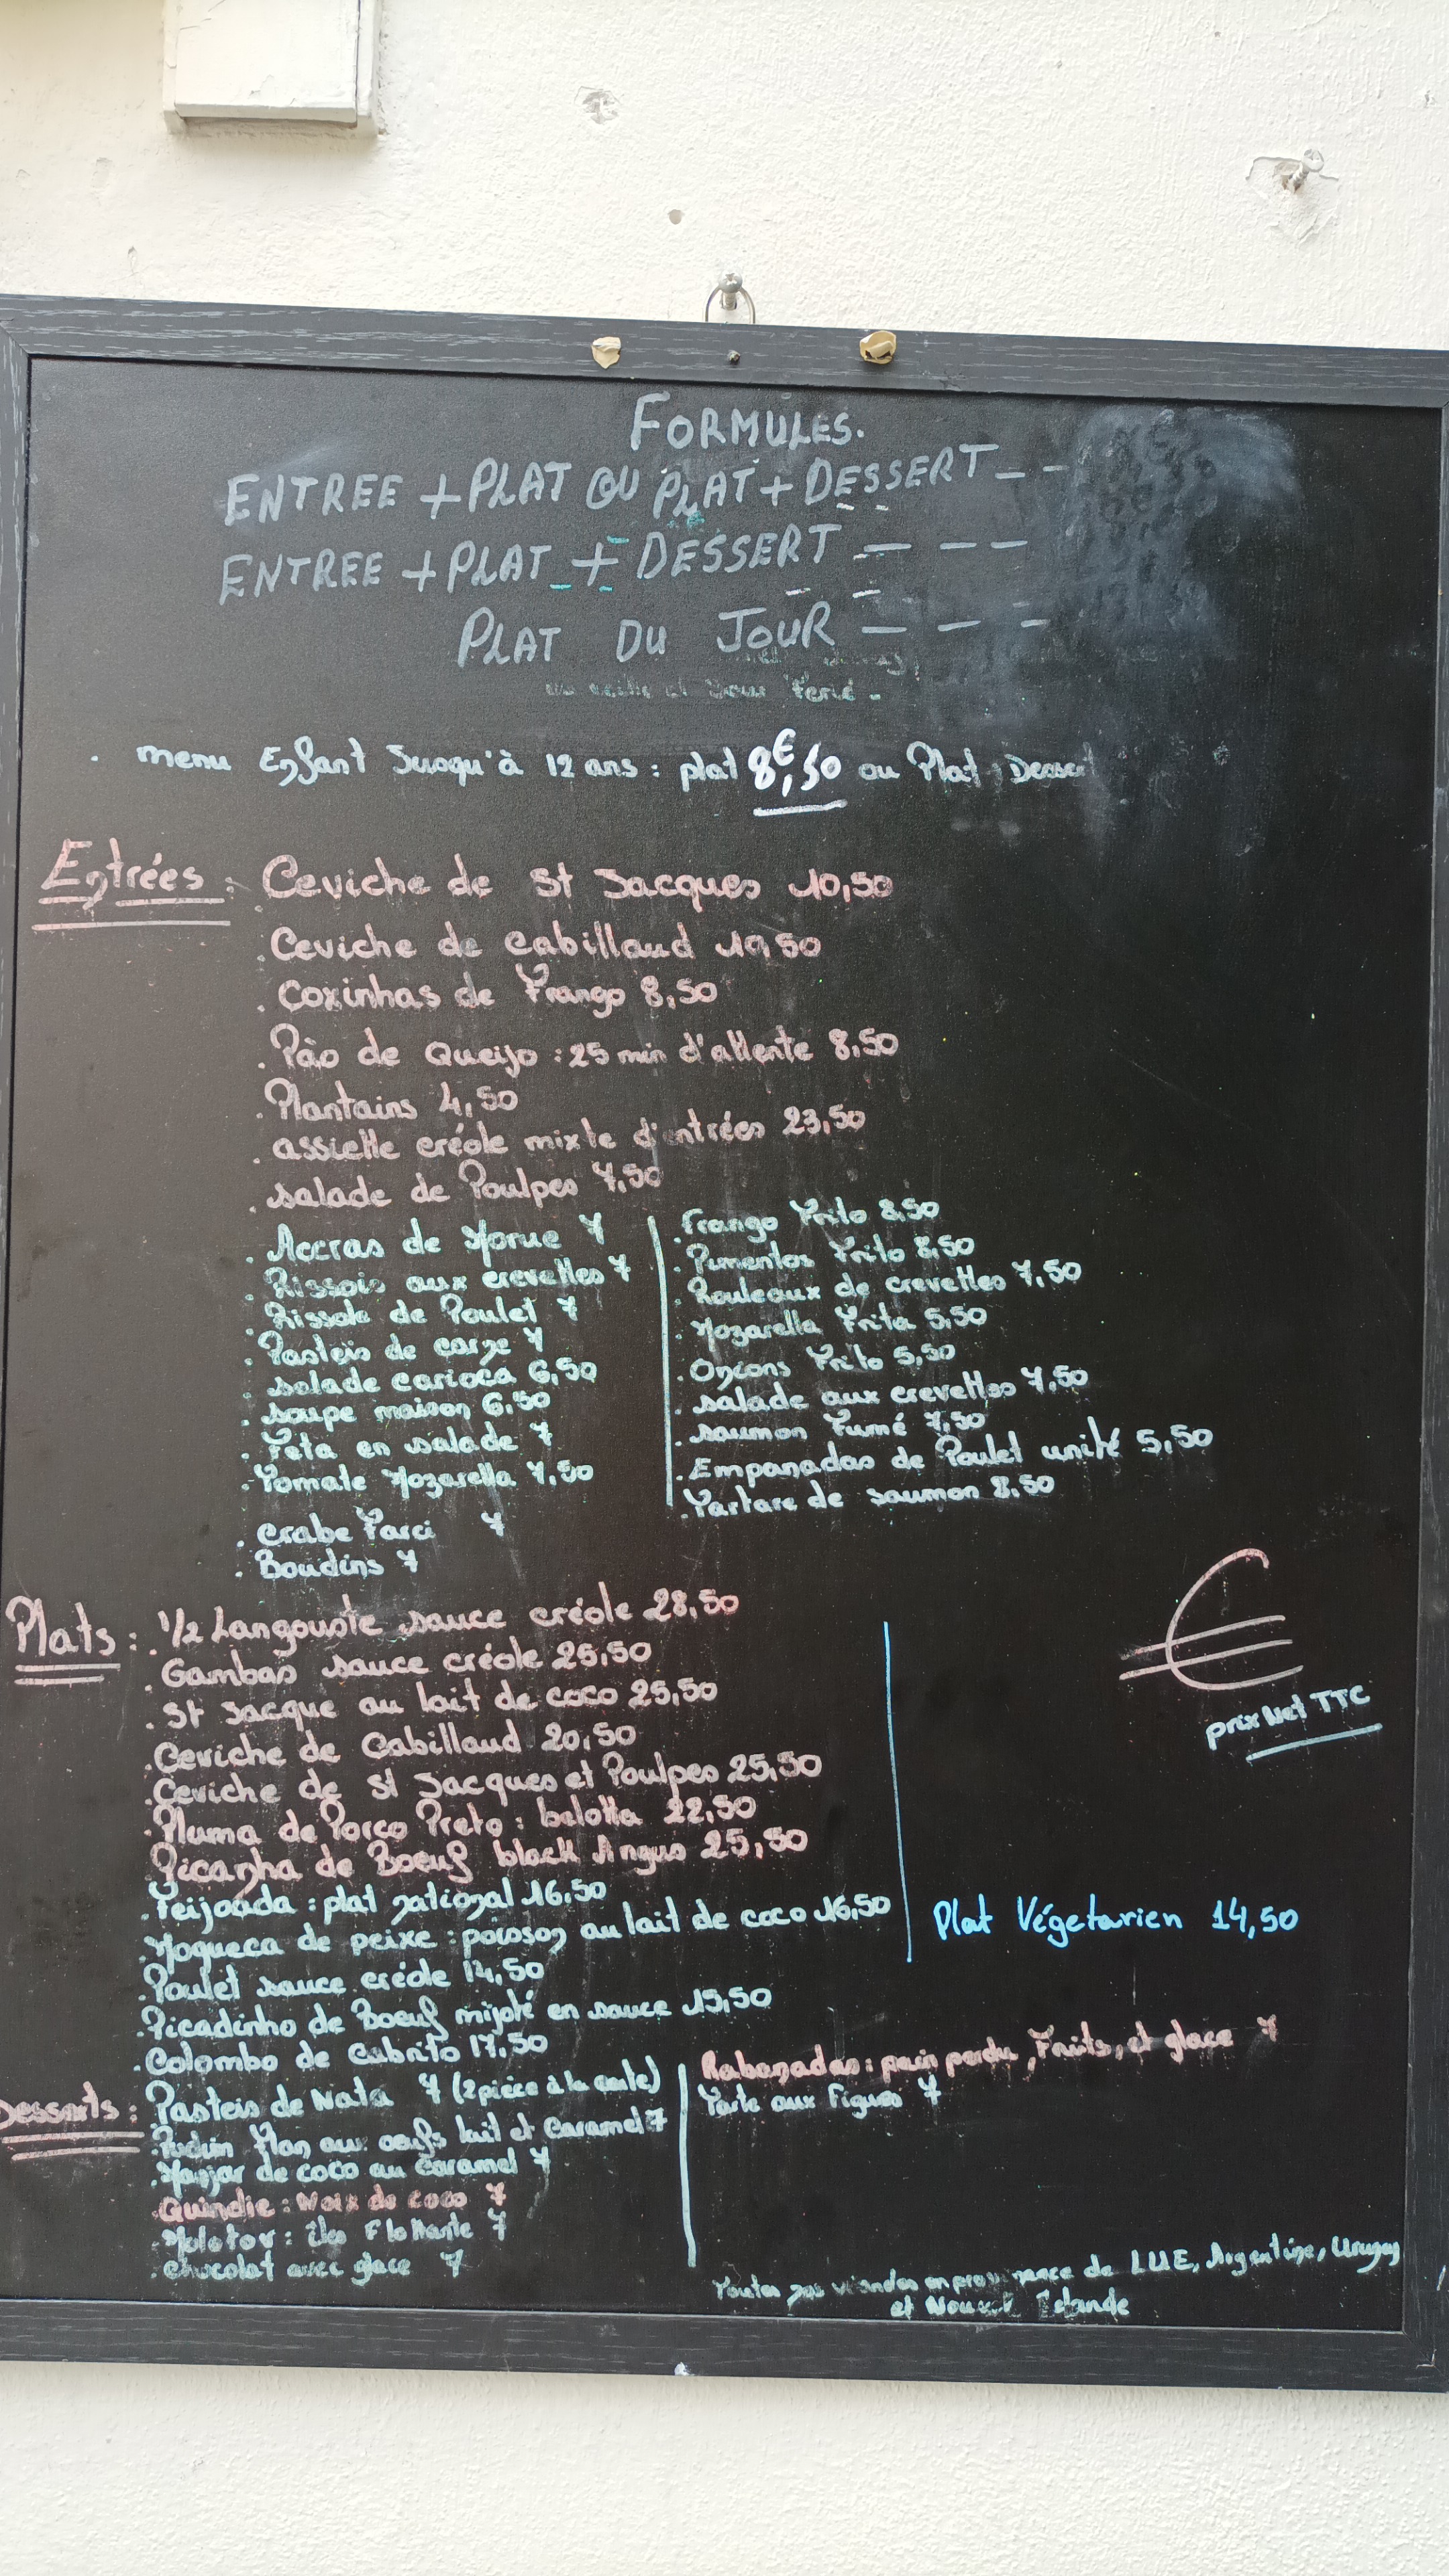 FORMULES.
ENTREE + PLAT OU PLAT + DESSERT _ _
ENTREE + PLAT + DESSERT _ _ _
PLAT DU JOUR _ _ _
veille et Jour Ferié
. menu Enfant Jusqu'à 12 ans : plat 8€,50 ou Plat, Dessert
Entrées : Ceviche de St Jacques 10,50
. Ceviche de Cabillaud 10,50
. Coxinhas de Frango 8,50
. Pão de Queijo : 25 min d'attente 8,50
. Plantains 4,50
. assiette créole mixte d'entrées 23,50
. salade de Poulpes 7,50
. Accras de Morue 7
. Rissois aux crevettes 7
. Rissole de Poulet 7
. Pasteis de carne 7
. salade carioca 6,50
. soupe maison 6,50
. Feta en salade 7
. Tomate Mozarella 7,50
. Crabe Farci 7
. Boudins 7
. Frango Frito 8,50
. Pimentos Frito 8,50
. Rouleaux de crevettes 7,50
. Mozarella Frita 5,50
. Onions Frito 5,50
. salade aux crevettes 7,50
. saumon Fumé 7,50
. Empanadas de Poulet unité 5,50
. Tartare de saumon 8,50
Plats : . 1/2 Langouste sauce créole 28,50
. Gambas sauce créole 25,50
. St Jacque au lait de coco 25,50
. Ceviche de Cabillaud 20,50
. Ceviche de St Jacques et Poulpes 25,50
. Pluma de Porco Preto : belotta 22,50
. Picanha de Boeuf black Angus 25,50
. Feijoada : plat national 16,50
. Moqueca de peixe : poisson au lait de coco 16,50
. Poulet sauce créole 14,50
. Picadinho de Boeuf mijoté en sauce 15,50
. Colombo de Cabrito 17,50
€
prix Net TTC
Plat Végetarien 14,50
Desserts : . Pasteis de Nata 7 (2 pièce à la carte)
. Pudim Flan aux oeufs lait et Caramel 7
. Manjar de coco au Caramel 7
. Quindie : Noix de coco 7
. Molotov : îles Flottante 7
. chocolat avec glace 7
. Rabanadas : pain perdu, Fruits, et glace 7
. Tarte aux Figues 7
Toutes viandes en provenance de LUE, Argentine, Uruguay
et Islande